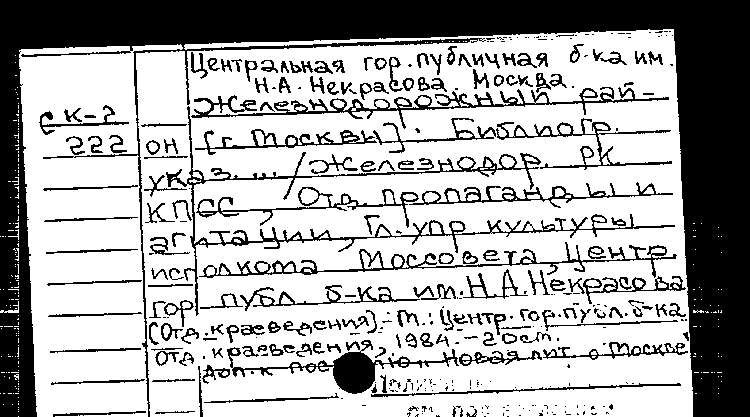 Центральная гор. публичная б-ка им.
Н.А. Некрасова Москва.
Железнодорожный рай-
с К-2
222
он [г. Москвы]: Библиогр.
указ. ... / Железнодор. РК
КПСС, Отд. пропаганды и
агитации, Гл. упр культуры
исполкома Моссовета, Центр.
гор публ. б-ка им. Н.А. Некрасова
(Отд. краеведения]. - М.: Центр. гор. публ. б-ка
Отд. краеведения, 1984. - 20см.
Доп. к Новая лит. о Москве"